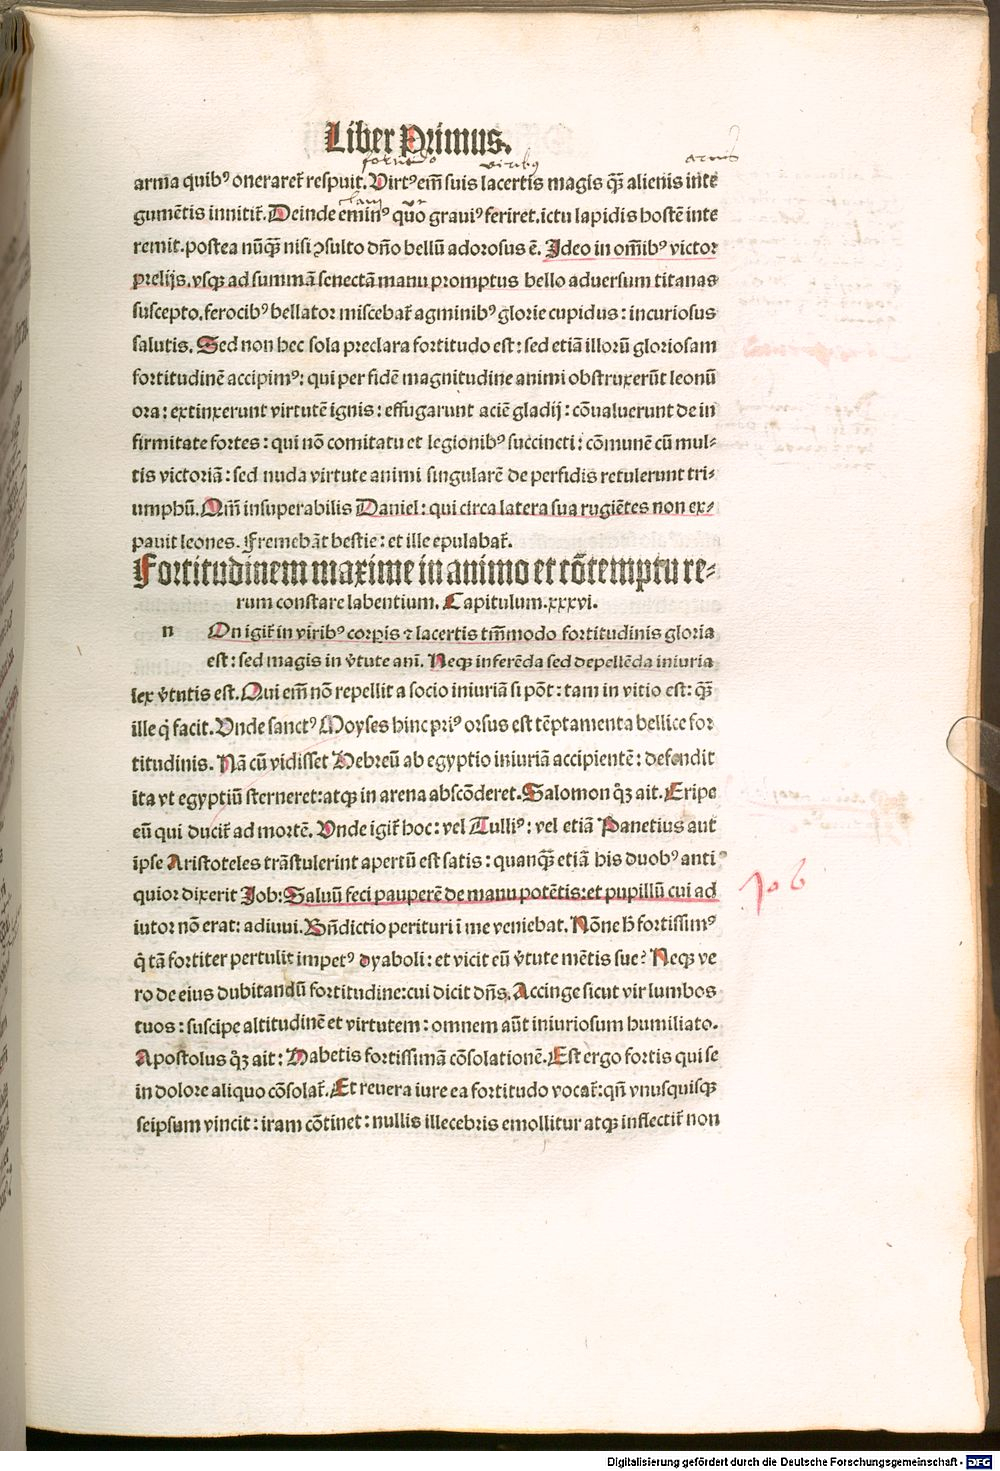 Liber Primus.
arma quibꝰ onerareť respuit. Virtꝰ em̄ suis lacertis magis qꝫ̄ alienis inte
gumētis innitiť. Deinde eminꝰ quo grauiꝰ feriret. ictu lapidis hostē inte
remit. postea nūqꝫ̄ nisi ↄsulto dn̄o bellū adorosus ē. Ideo in om̄ibꝰ victor
prelijs. vsqꝫ ad summā senectā manu promptus bello aduersum titanas
suscepto. ferocibꝰ bellator miscebať agminibꝰ glorie cupidus: incuriosus
salutis. Sed non hec sola preclara fortitudo est: sed etiā illorū gloriosam
fortitudinē accipimꝰ: qui per fidē magnitudine animi obstruxerūt leonū
ora: extinxerunt virtutē ignis: effugarunt aciē gladij: cōualuerunt de in
firmitate fortes: qui nō comitatu et legionibꝰ succincti: cōmunē cū mul⸗
tis victoriā: sed nuda virtute animi singularē de perfidis retulerunt tri⸗
umphū. Qm̄ insuperabilis Daniel: qui circa latera sua rugiētes non ex⸗
pauit leones. Fremebāt bestie: et ille epulabať.
Fortitudinem maxime in animo et cōtemptu re⸗
rum constare labentium. Capitulum. xxxvi.
n On igiť in viribꝰ corpis ⁊ lacertis tm̄modo fortitudinis gloria
est: sed magis in v̄tute ani. Neqꝫ inferēda sed depellēda iniuria
lex v̄tutis est. Qui em̄ nō repellit a socio iniuriā si pōt: tam in vitio est: qꝫ̄
ille q̇ facit. Vnde sanctꝰ Moyses hinc priꝰ orsus est tēptamenta bellice for
titudinis. Nā cū vidisset Hebreū ab egyptio iniuriā accipientē: defendit
ita vt egyptiū sterneret: atqꝫ in arena abscōderet. Salomon qꝫ ait. Eripe
eū qui duciť ad mortē. Vnde igiť hoc: vel Tulliꝰ: vel etiā Panetius aut
ipse Aristoteles trāstulerint apertū est satis: quanqꝫ̄ etiā his duobꝰ anti
quior dixerit Job: Saluū feci pauperē de manu potētis: et pupillū cui ad
iutor nō erat: adiuui. Bn̄dictio perituri ī me veniebat. Nōne h̄ fortissimꝰ
q̇ tā fortiter pertulit impetꝰ dyaboli: et vicit eū v̄tute mētis sue? Neqꝫ ve
ro de eius dubitandū fortitudine: cui dicit dn̄s. Accinge sicut vir lumbos
tuos: suscipe altitudinē et virtutem: omnem aūt iniuriosum humiliato.
Apostolus qꝫ ait: Habetis fortissimā cōsolationē. Est ergo fortis qui se
in dolore aliquo cōsolať. Et reuera iure ea fortitudo vocať: qn̄ vnusquisqꝫ
seipsum vincit: iram cōtinet: nullis illecebris emollitur atqꝫ inflectiť non
Job
Digitalisierung gefördert durch die Deutsche Forschungsgemeinschaft - DFG